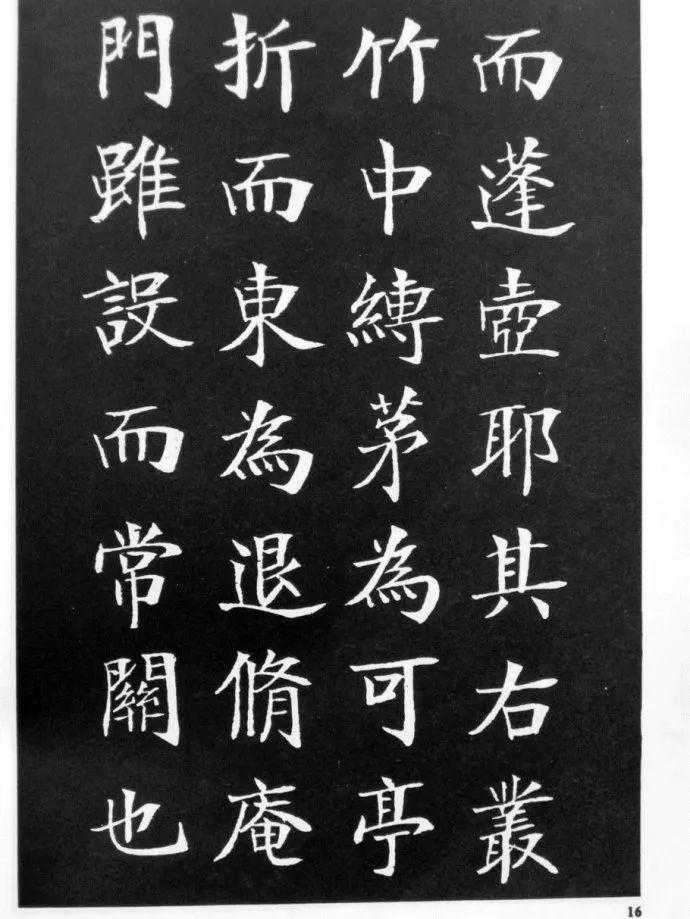 而蓬壺耶其右叢
竹中縛茅為可亭
折而東為退脩庵
門雖設而常關也
16